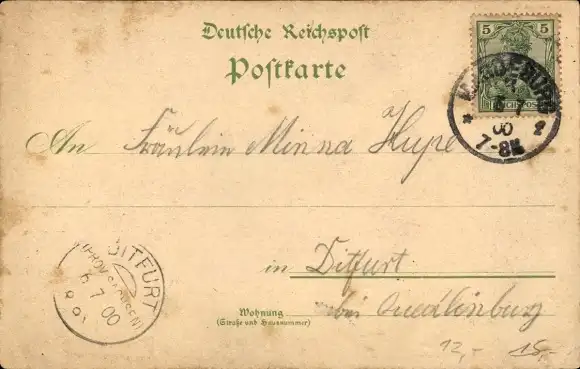 Deutsche Reichspost
Postkarte
5 5
REICHSPOST
6 7
00
7-8N
An Fräulein Minna Hupe
in Ditfurt
bei Quedlinburg
Wohnung
(Straße und Hausnummer)
DITFURT
(PROV. SACHSEN)
6 7 00
12,- 15,-